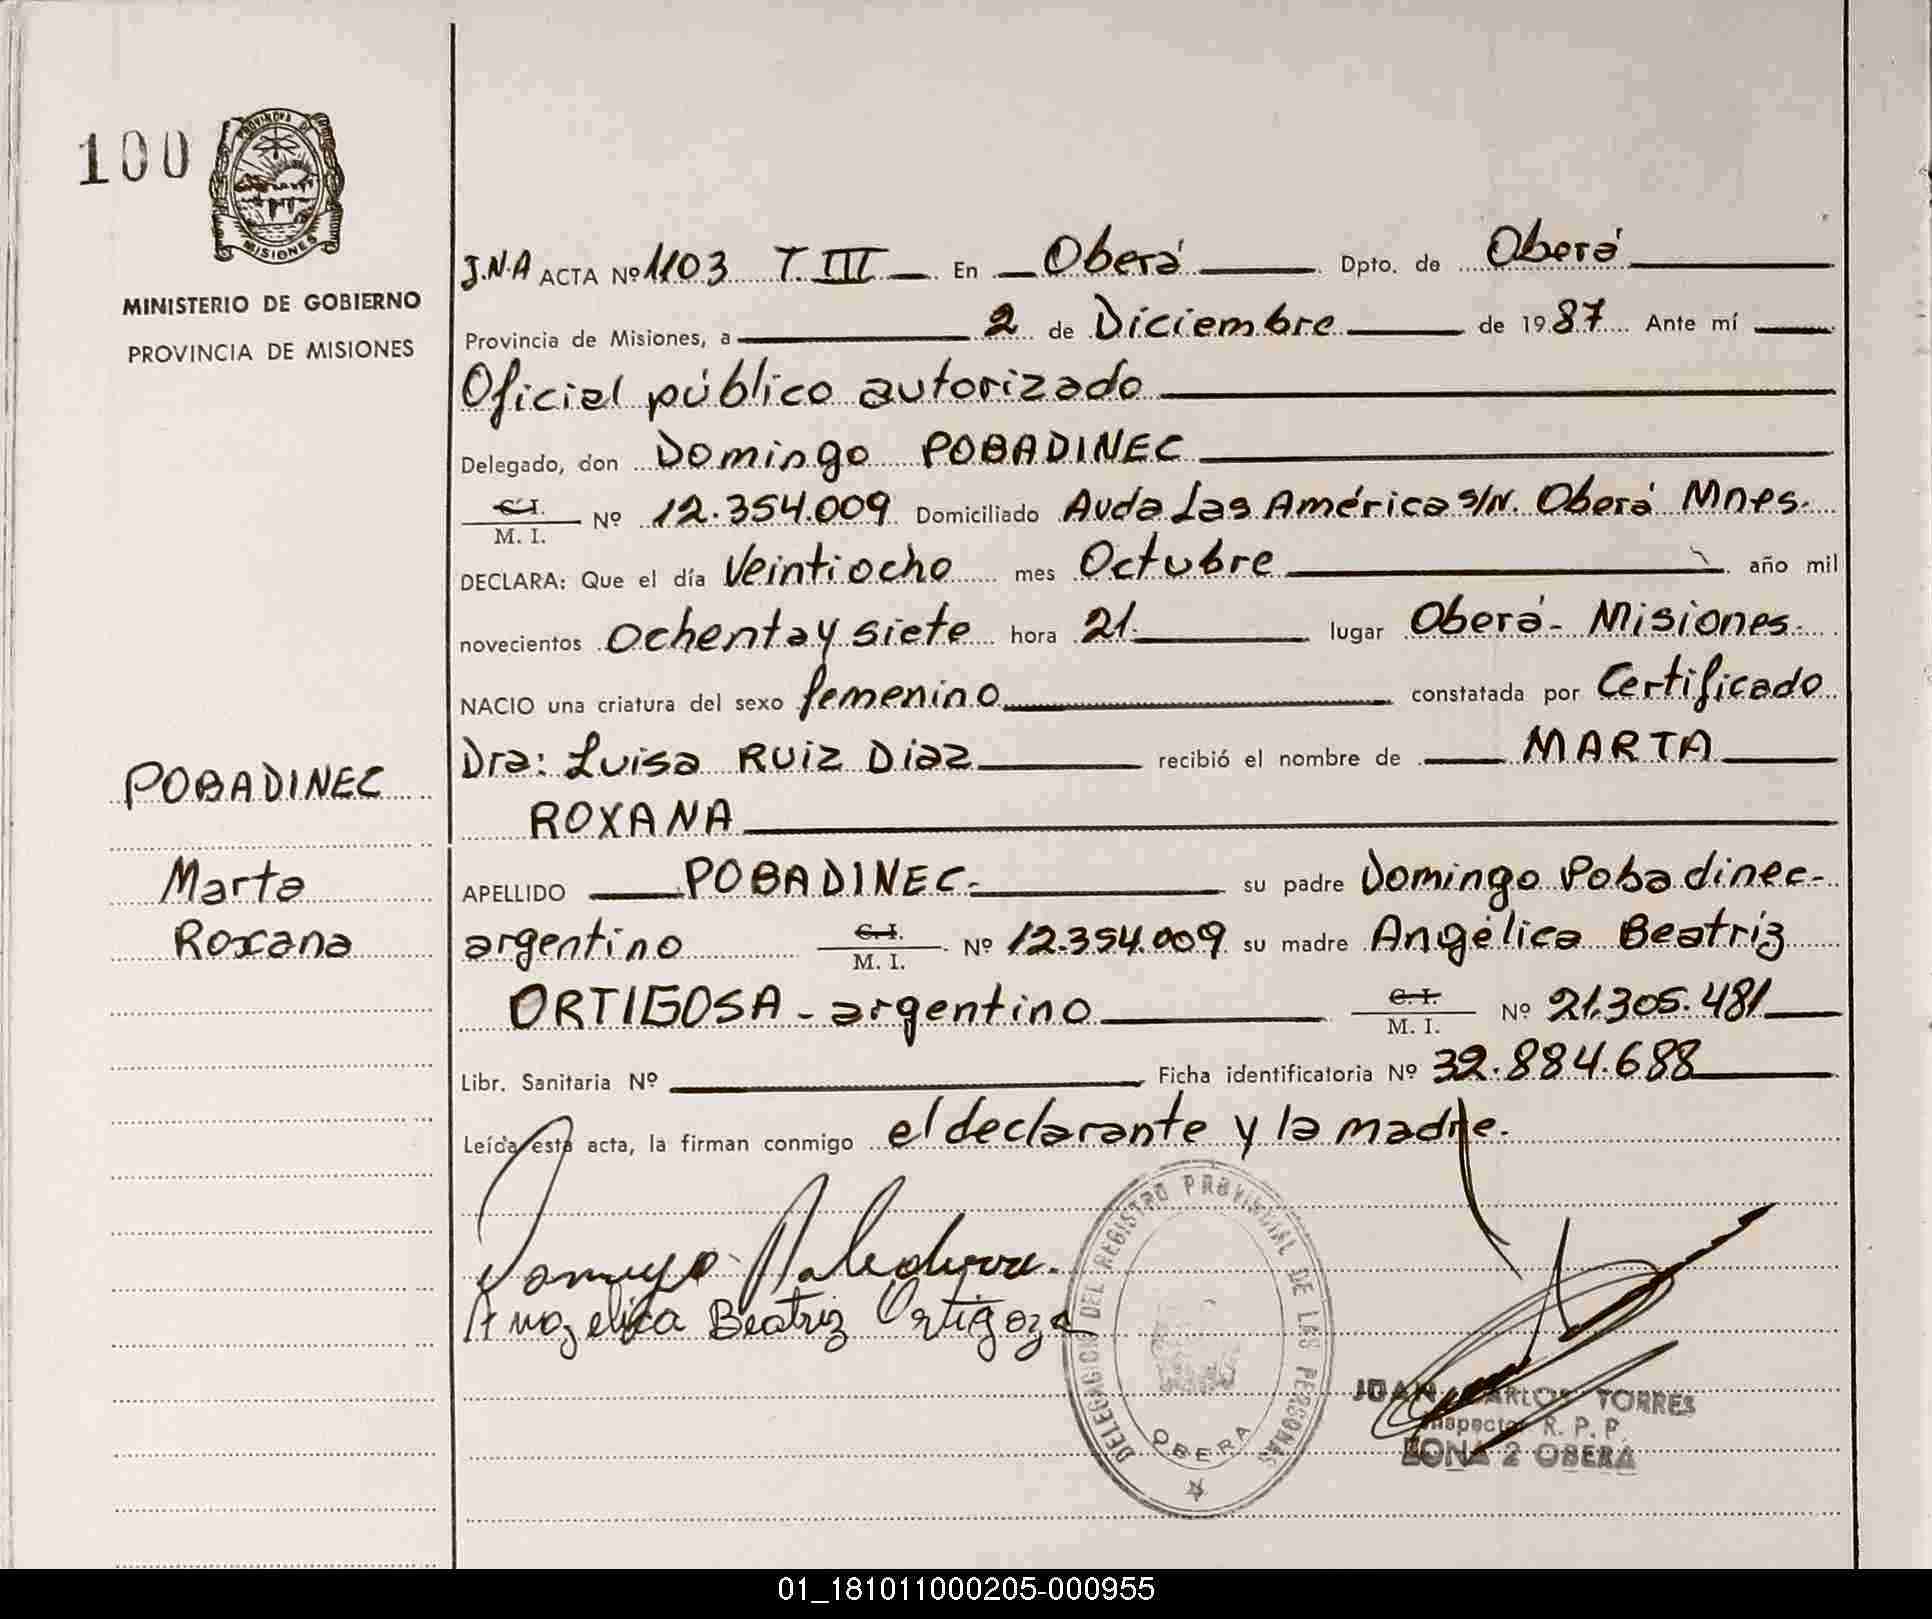 100
PROVINCIA DE
MISIONES
MINISTERIO DE GOBIERNO
PROVINCIA DE MISIONES
POBADINEC
Marta
Roxana
J.N.A ACTA Nº 1103 T. III En Oberá Dpto. de Oberá
Provincia de Misiones, a 2 de Diciembre de 1987 Ante mí
Oficial público autorizado
Delegado, don Domingo POBADINEC
C.I.
M. I. Nº 12.354.009 Domiciliado Avda Las América s/N. Oberá Mnes.
DECLARA: Que el día Veintiocho mes Octubre año mil
novecientos ochenta y siete hora 21. lugar Oberá - Misiones.
NACIO una criatura del sexo femenino constatada por Certificado
Dra: Luisa RUIZ DIAZ recibió el nombre de MARTA
ROXANA
APELLIDO POBADINEC.- su padre Domingo Pobadinec-
argentino C.I. M. I. Nº 12.354.009 su madre Angélica Beatriz
ORTIGOSA - argentino C.I. M. I. Nº 21.305.481
Libr. Sanitaria Nº Ficha identificatoria Nº 32.884.688
Leída esta acta, la firman conmigo el declarante y la madre.
Angelica Beatriz Ortigoza
DELEGACION DEL REGISTRO PROVINCIAL DE LAS PERSONAS
OBERA
JUAN CARLOS TORRES
Inspector R. P. P.
ZONA 2 OBERA
01_181011000205-000955